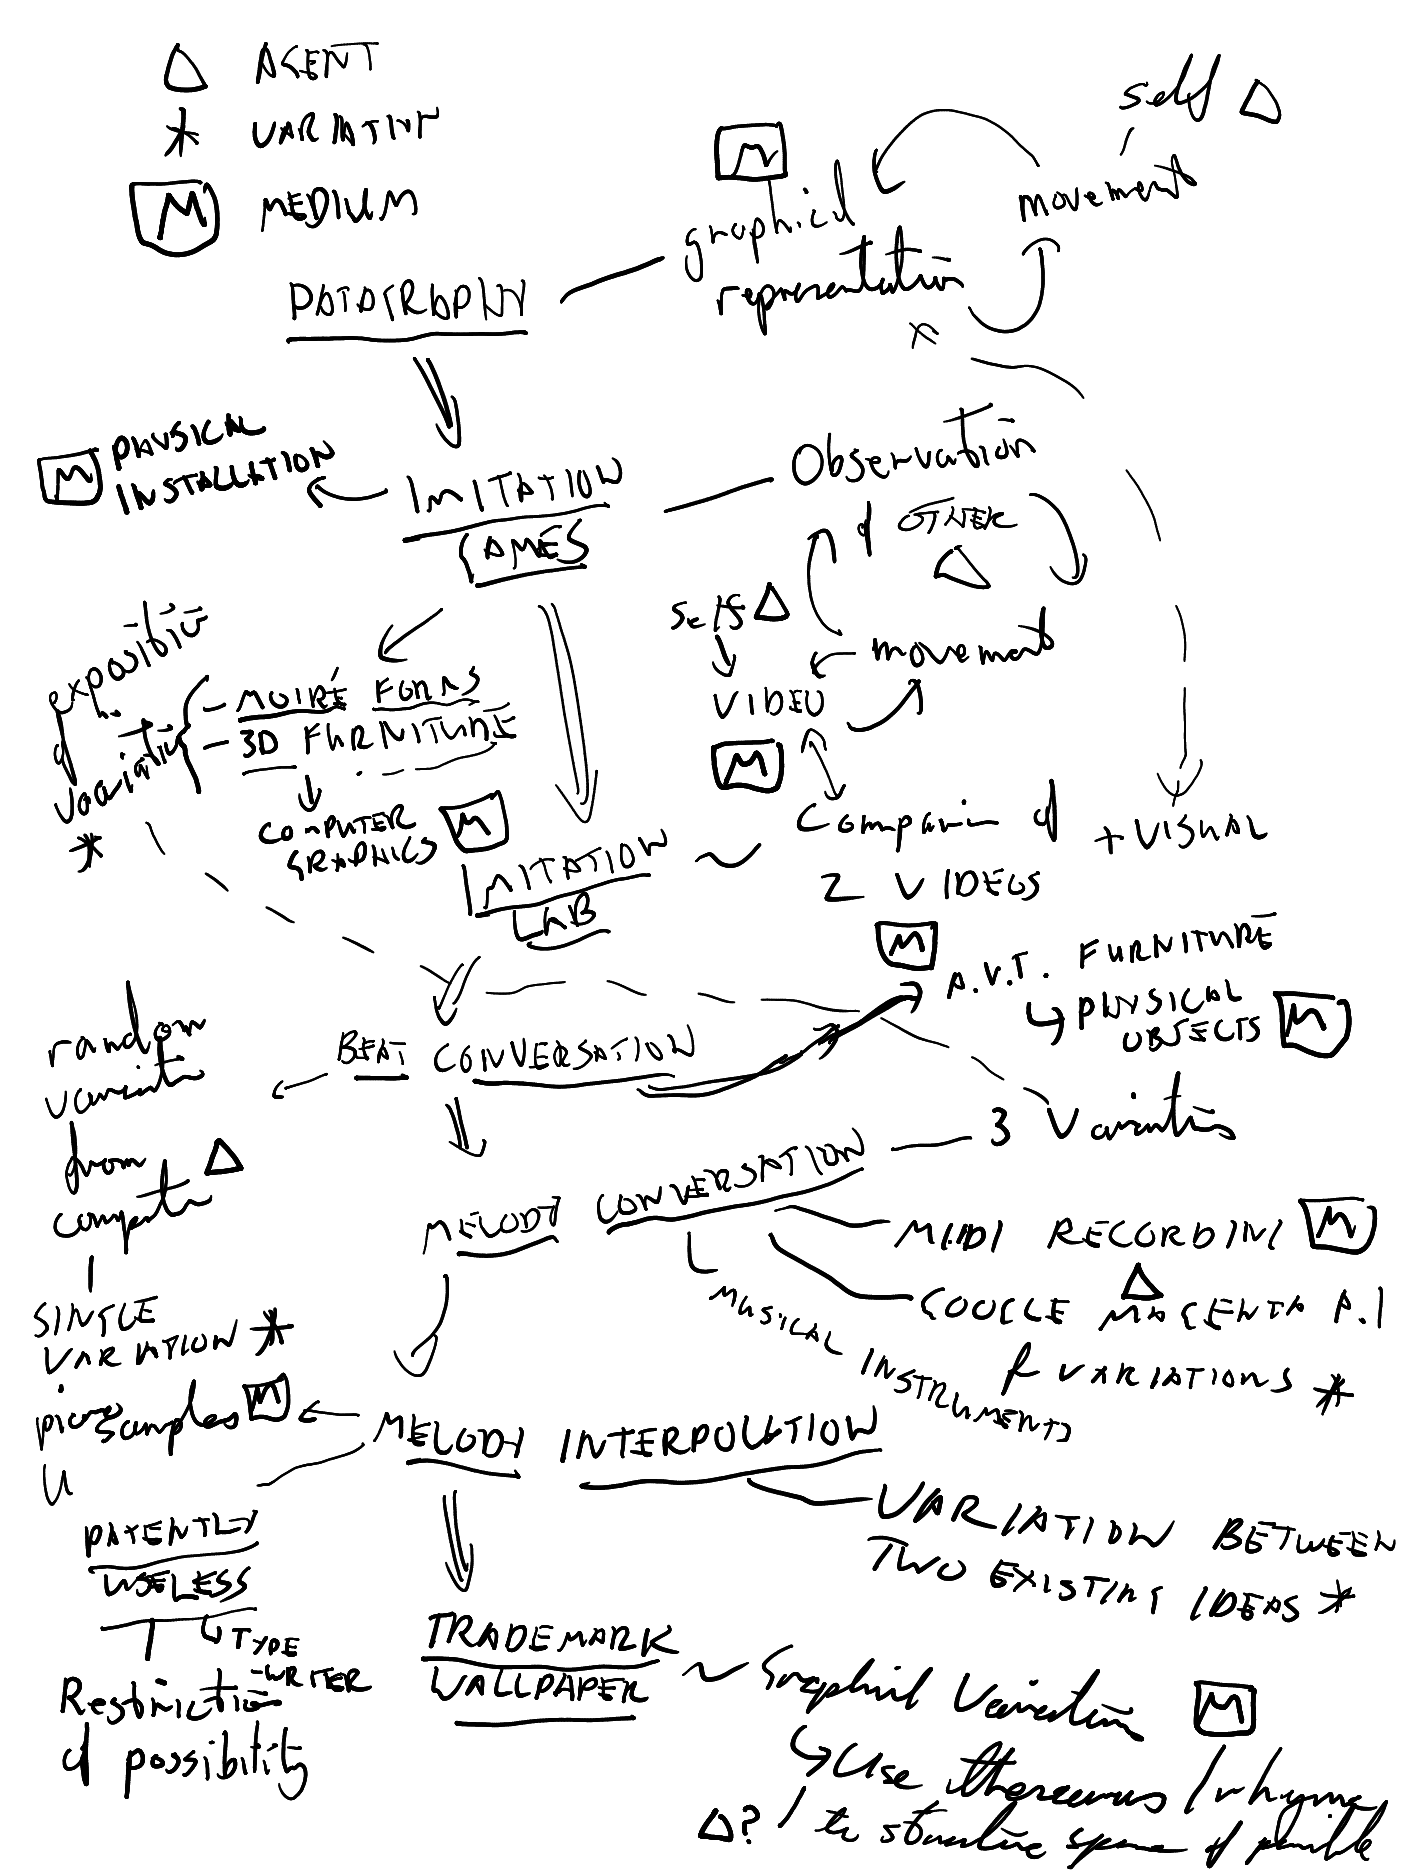 AGENT
VARIATION
M MEDIUM
self
movement
M
graphical
representation
DATAGRAPHY
x
M PHYSICAL
INSTALLATION
IMITATION
GAMES
Observation
of OTHER
self
movement
VIDEO
M
exposition
of
variation
- MOIRÉ FORMS
- 3D FURNITURE
COMPUTER
GRAPHICS
M
IMITATION
LAB
Comparison of
2 VIDEOS
+ VISUAL
M
A.V.T. FURNITURE
PHYSICAL
OBJECTS
M
BEAT CONVERSATION
random
variation
from
computer
SINGLE
VARIATION
3 Variations
MELODY CONVERSATION
MIDI RECORDING M
GOOGLE MAGENTA A.I
& VARIATIONS
MUSICAL INSTRUMENTS
piano samples M
MELODY INTERPOLATION
VARIATION BETWEEN
TWO EXISTING IDEAS
PATENTLY
USELESS
TYPE
-WRITER
Restriction
of possibility
TRADEMARK
WALLPAPER
Graphical Variation M
Use thesaurus / rhyme
? to structure space of possible